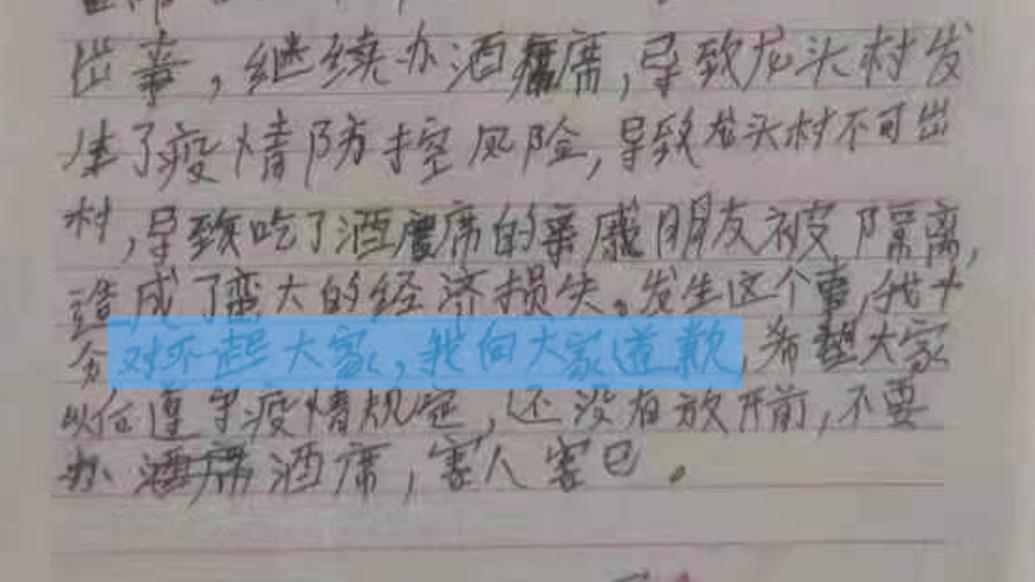 出事，继续办酒席，导致龙头村发
生了疫情防控风险，导致龙头村不可出
村，导致吃了酒席的亲戚朋友被隔离，
造成了蛮大的经济损失。发生这个事，我十
分对不起大家，我向大家道歉，希望大家
以后遵守疫情规定，还没有放开前，不要
办酒席酒席，害人害已。